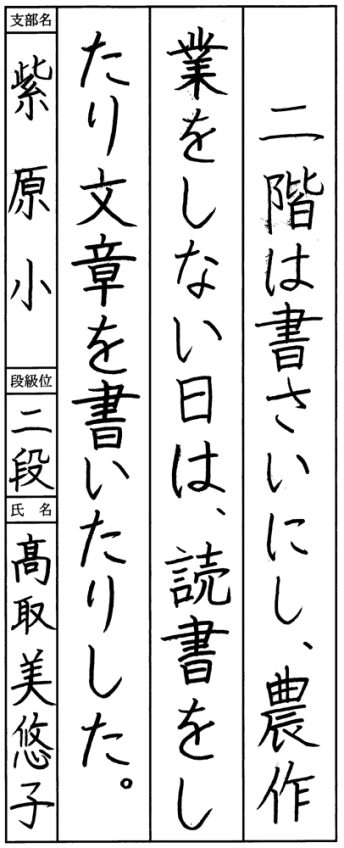 二階は書さいにし、農作
業をしない日は、読書をし
たり文章を書いたりした。
支部名
紫原小
段級位
二段
氏名
髙取美悠子